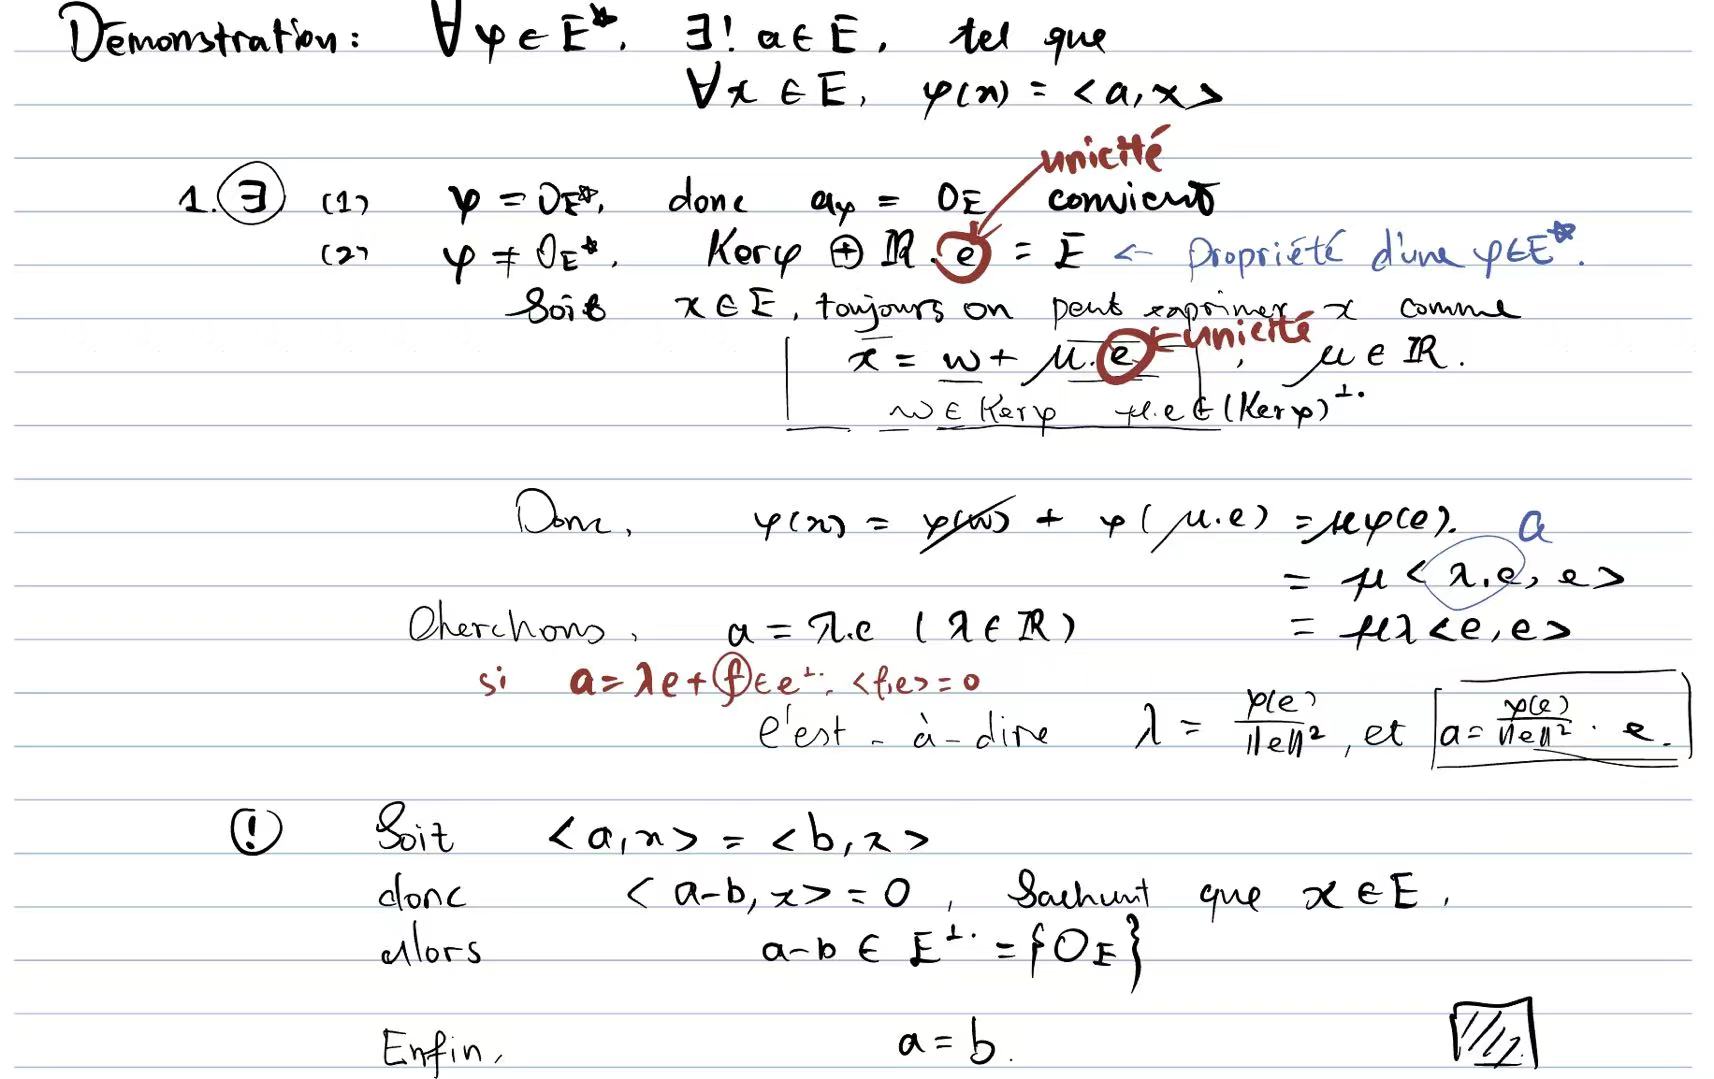 Démonstration: ∀ φ ∈ E*, ∃! a ∈ E, tel que
∀x ∈ E, φ(x) = <a, x>
unicité
1. ∃ (1) φ = 0E*, donc aφ = 0E convient
(2) φ ≠ 0E*, Kerφ ⊕ ℝ.e = E ← Propriété d'une φ∈E*.
Soit x ∈ E, toujours on peut exprimer x comme
x = w + μ.e ← unicité, μ ∈ ℝ.
w ∈ Kerφ μ.e ∈ (Kerφ)⊥.
Donc, φ(x) = φ(w) + φ(μ.e) = μφ(e). a
= μ < λ.e, e >
Cherchons, a = λ.e (λ ∈ ℝ) = μλ <e, e>
si a = λe + f ∈ e⊥. <f,e> = 0
c'est-à-dire λ = φ(e)/||e||², et a = φ(e)/||e||² . e.
! Soit <a, x> = <b, x>
donc < a-b, x> = 0, Sachant que x ∈ E,
alors a-b ∈ E⊥. = {0E}
Enfin, a = b.